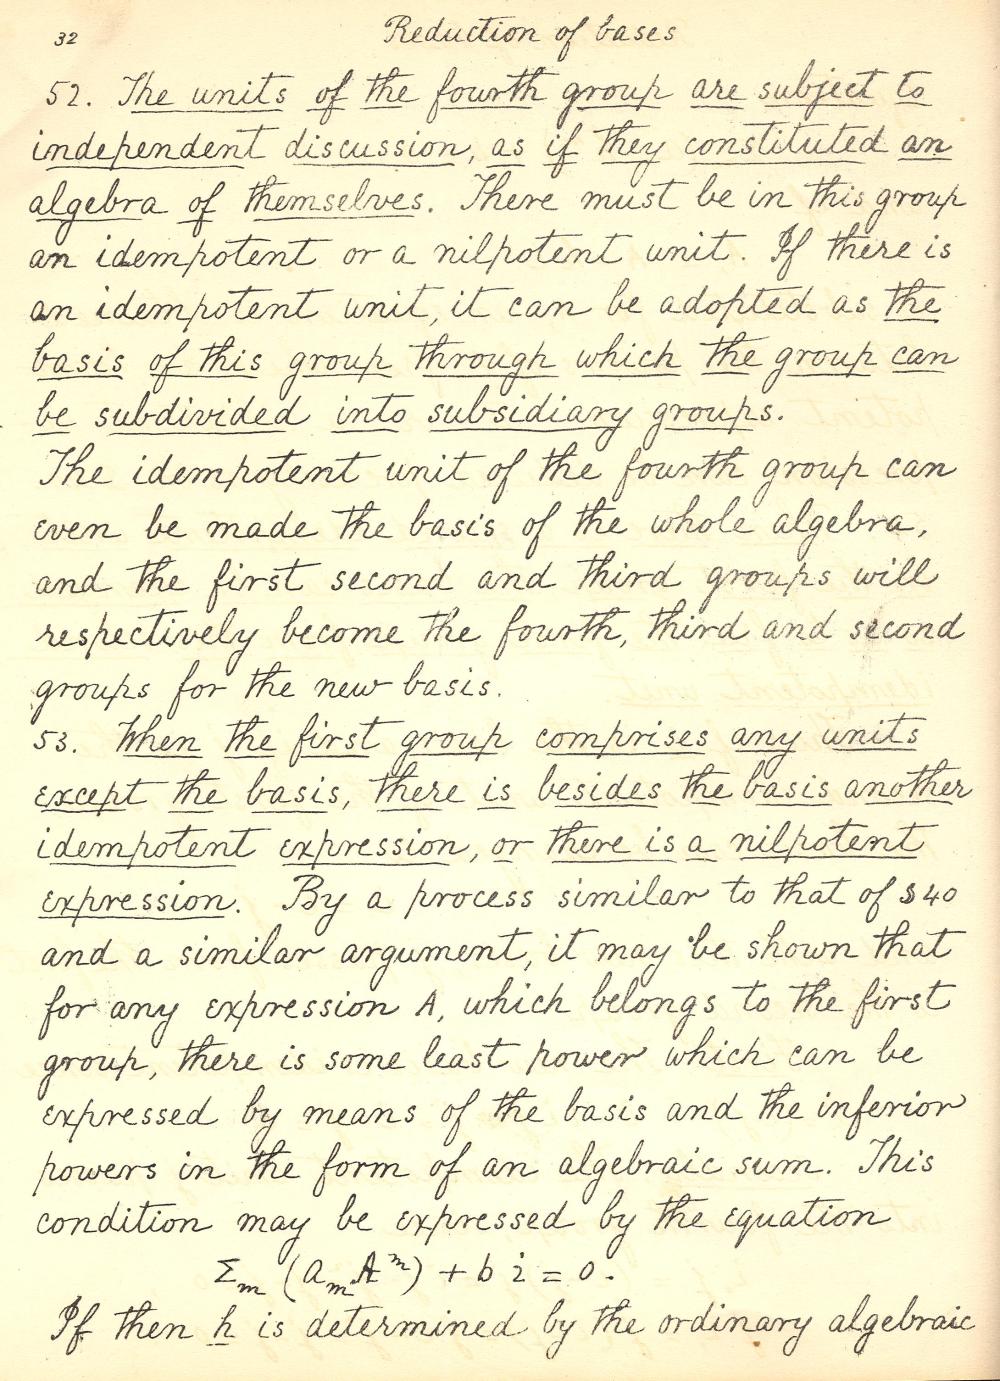 32 Reduction of bases
52. The units of the fourth group are subject to
independent discussion, as if they constituted an
algebra of themselves. There must be in this group
an idempotent or a nilpotent unit. If there is
an idempotent unit, it can be adopted as the
basis of this group through which the group can
be subdivided into subsidiary groups.
The idempotent unit of the fourth group can
even be made the basis of the whole algebra,
and the first second and third groups will
respectively become the fourth, third and second
groups for the new basis.
53. When the first group comprises any units
except the basis, there is besides the basis another
idempotent expression, or there is a nilpotent
expression. By a process similar to that of § 40
and a similar argument, it may be shown that
for any expression A, which belongs to the first
group, there is some least power which can be
expressed by means of the basis and the inferior
powers in the form of an algebraic sum. This
condition may be expressed by the equation
Σₘ (aₘAᵐ) + b i = 0.
If then h is determined by the ordinary algebraic